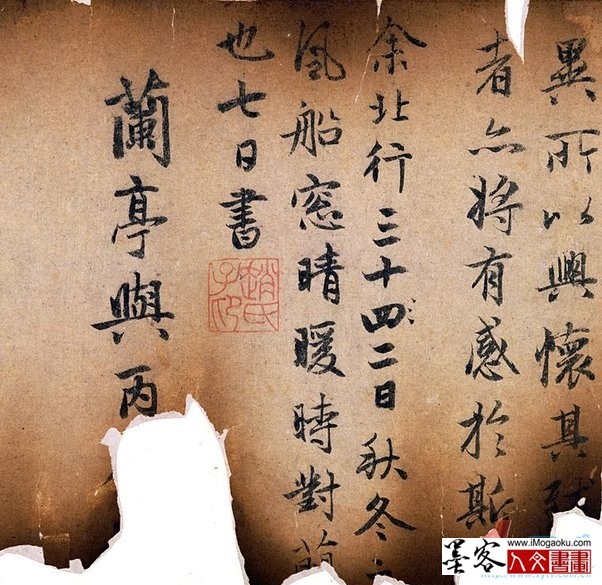 異所以興懷其致
者亦将有感於斯
余北行三十四二日秋冬之
風船窓晴暖時對
也七日書
趙氏子昂
蘭亭與丙
墨客
www.iMogaoku.com
人文書畫